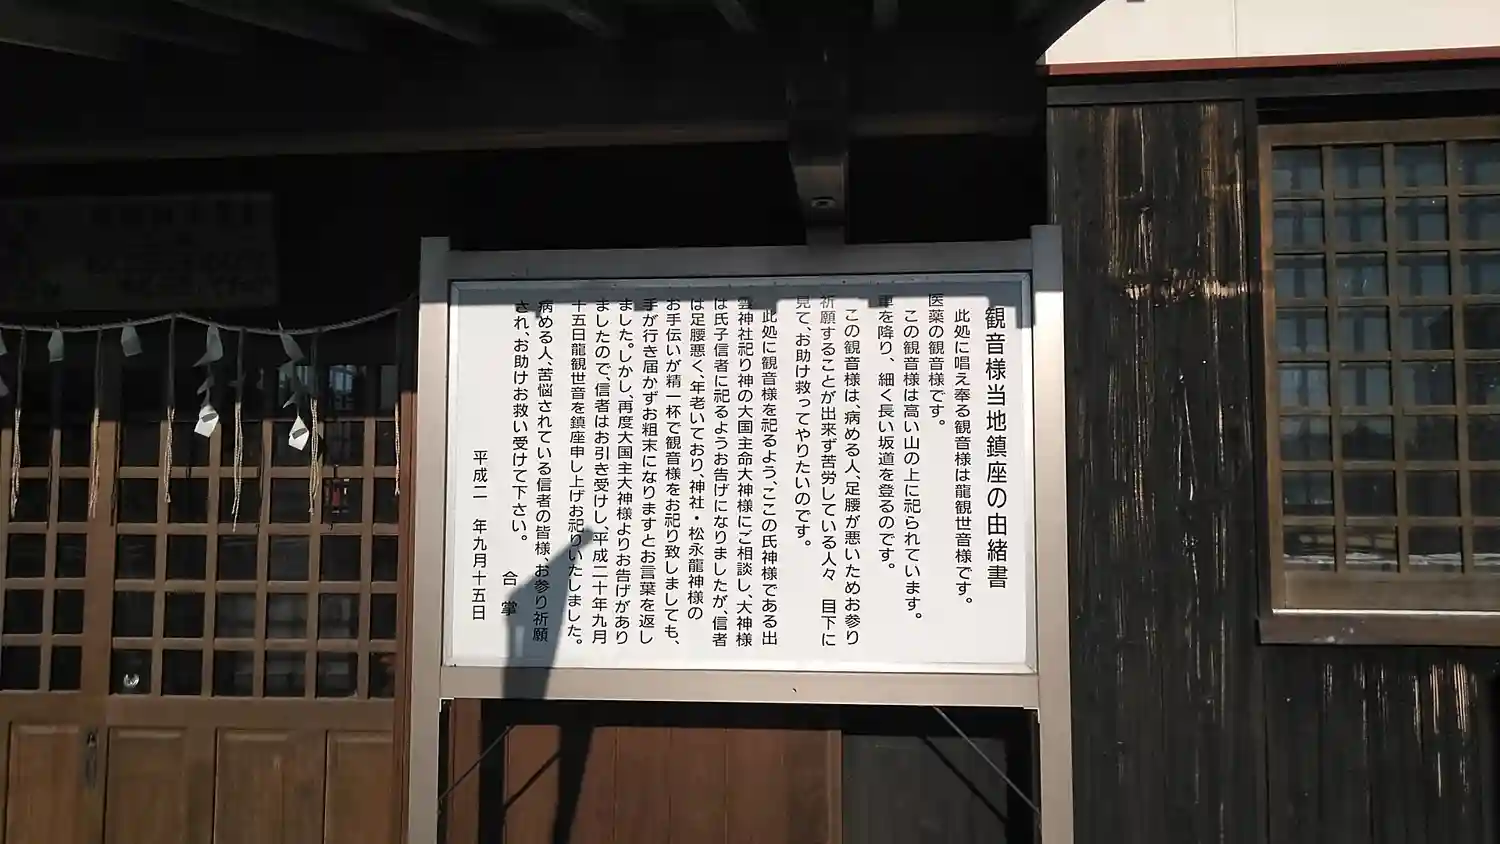 観音様当地鎮座の由緒書
此処に唱え奉る観音様は龍観世音様です。
医薬の観音様です。
この観音様は高い山の上に祀られています。
車を降り、細く長い坂道を登るのです。
この観音様は、病める人、足腰が悪いためお参り
祈願することが出来ず苦労している人々 目下に
見て、お助け救ってやりたいのです。
此処に観音様を祀るよう、ここの氏神様である出
雲神社祀り神の大国主命大神様にご相談し、大神様
は氏子信者に祀るようお告げになりましたが、信者
は足腰悪く、年老いており、神社・松永龍神様の
お手伝いが精一杯で観音様をお祀り致しましても、
手が行き届かずお粗末になりますとお言葉を返し
ました。しかし、再度大国主大神様よりお告げがあり
ましたので、信者はお引き受けし、平成二十年九月
十五日龍観世音を鎮座申し上げお祀りいたしました。
病める人、苦悩されている信者の皆様、お参り祈願
され、お助けお救い受けて下さい。
合掌
平成二 年九月十五日